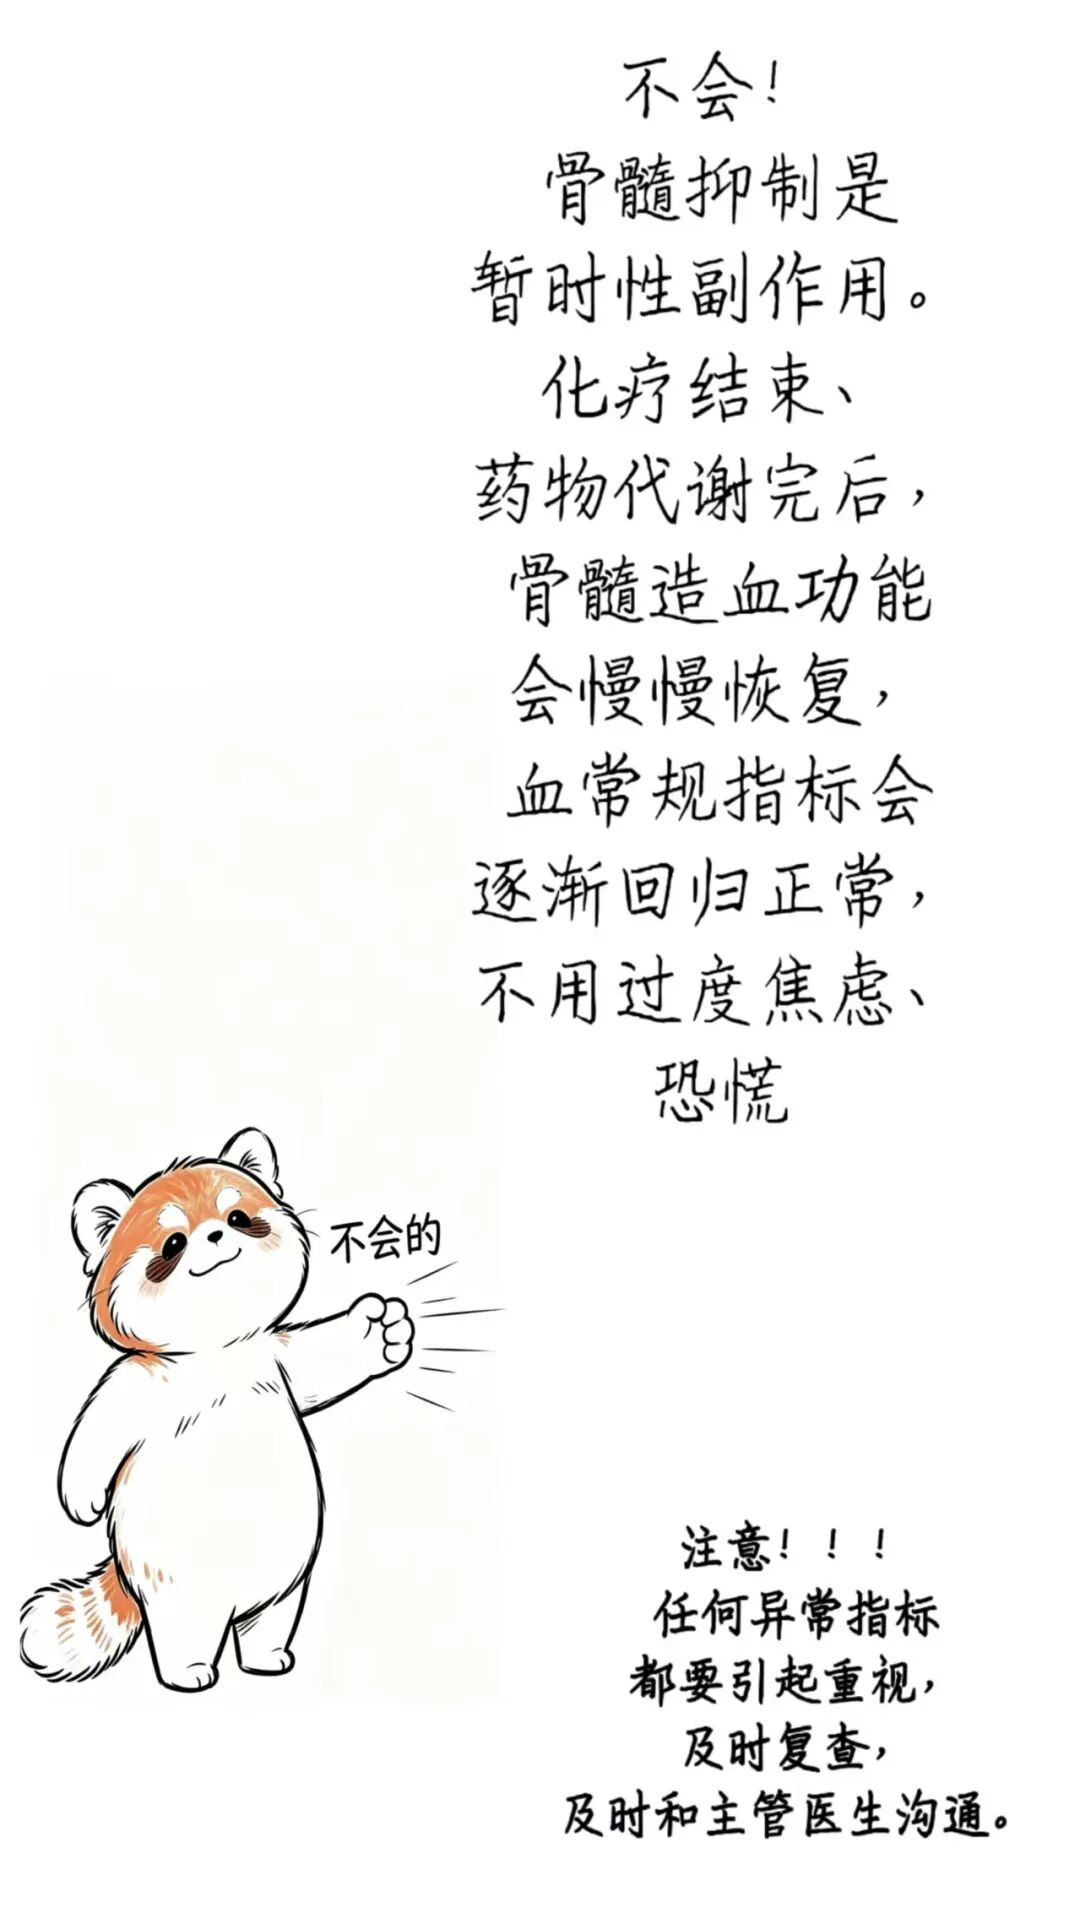 不会！
骨髓抑制是
暂时性副作用。
化疗结束、
药物代谢完后，
骨髓造血功能
会慢慢恢复，
血常规指标会
逐渐回归正常，
不用过度焦虑、
恐慌
不会的
注意！！！
任何异常指标
都要引起重视，
及时复查，
及时和主管医生沟通。